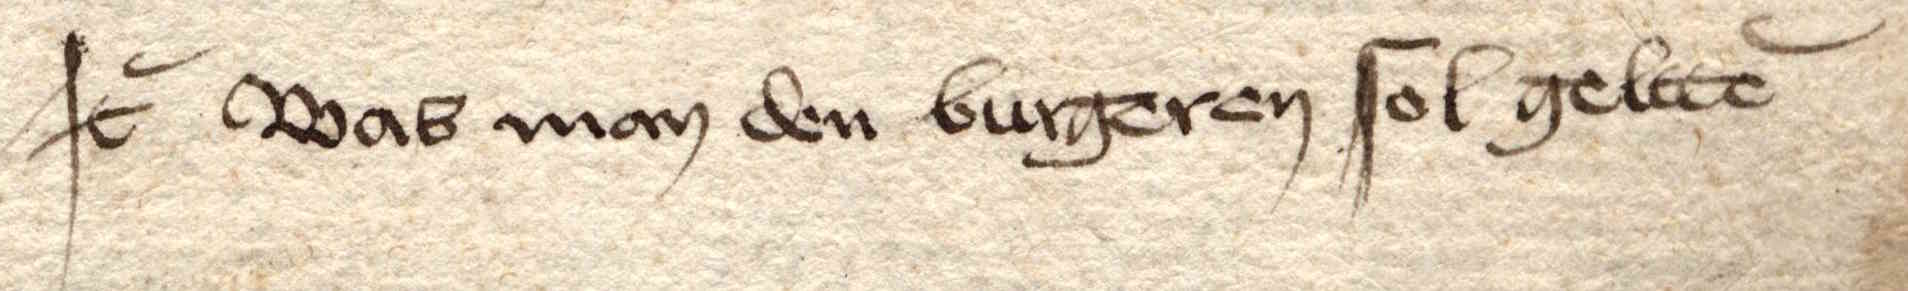 It̄ Was man den burgeren sol gelttē